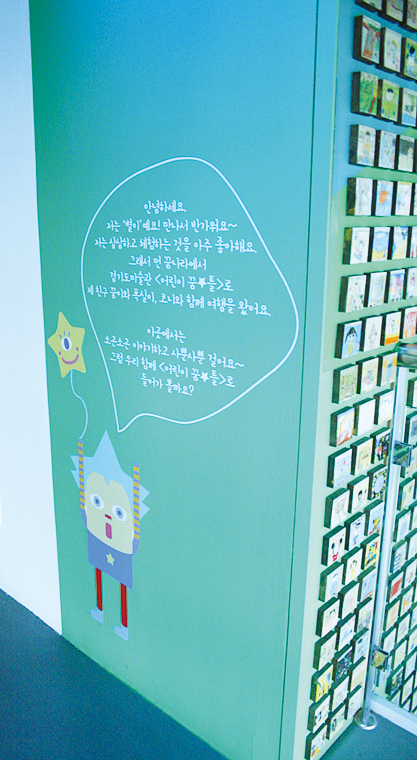 안녕하세요.
저는 '별이'예요! 만나서 반가워요~
저는 상상하고 체험하는 것을 아주 좋아해요.
그래서 먼 꿈나라에서
경기도미술관 <어린이 꿈★틀>로
제 친구 꿈이와 톡실이, 코니와 함께 여행을 왔어요.
이곳에서는
소곤소곤 이야기하고 사뿐사뿐 걸어요~
그럼 우리 함께 <어린이 꿈★틀>로
들어가 볼까요?